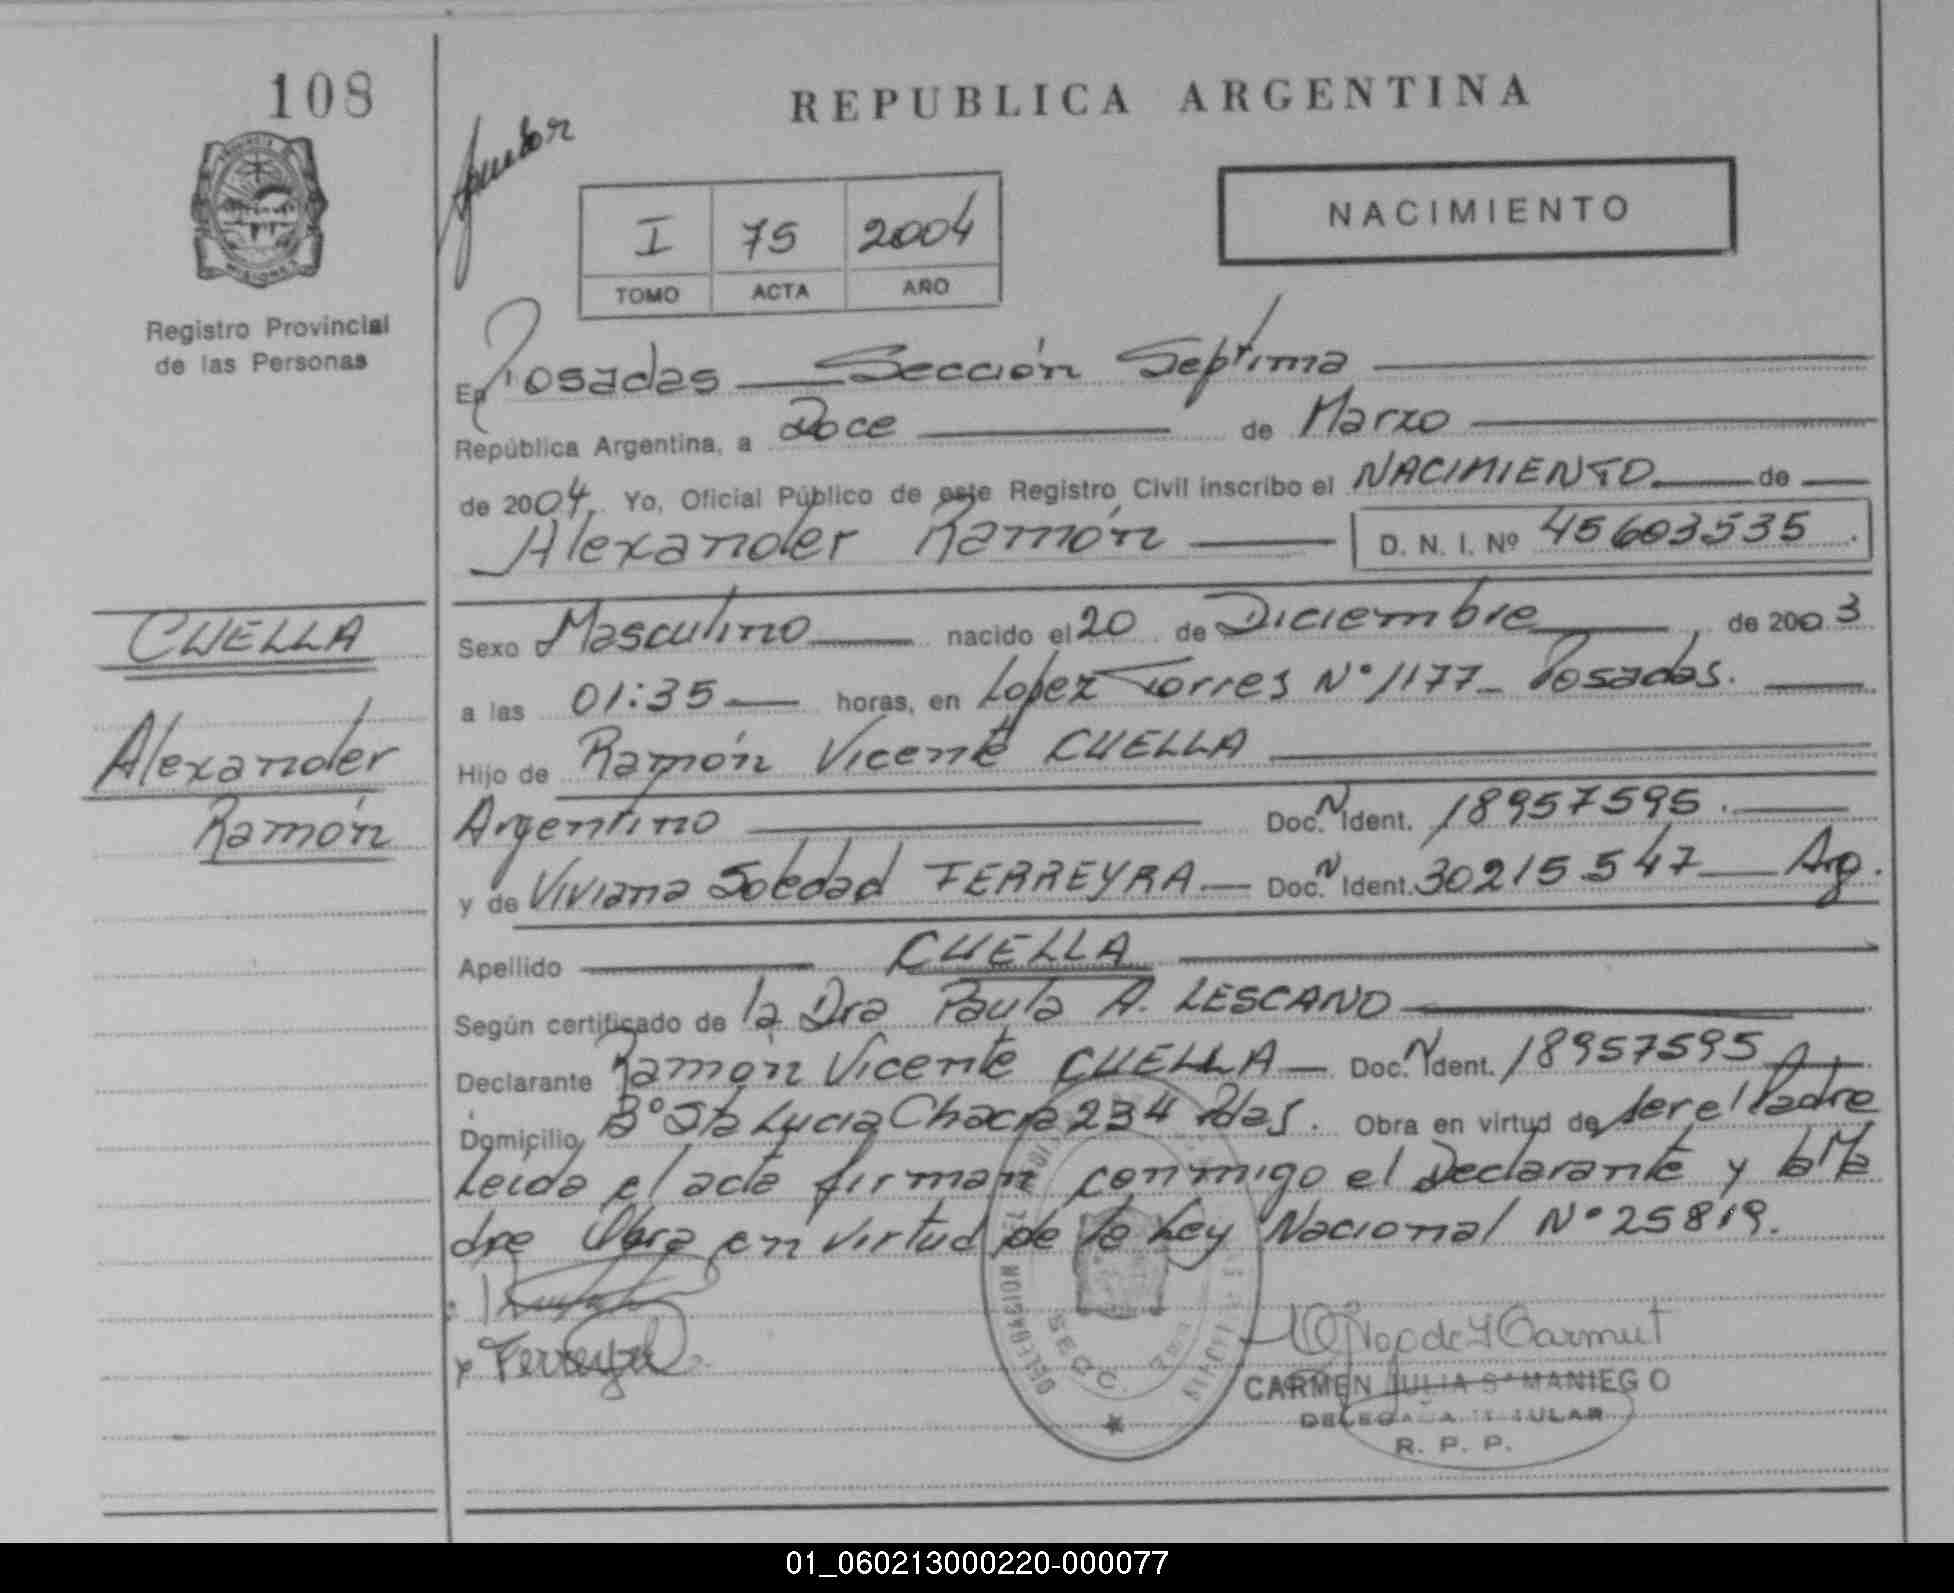 108
REPUBLICA ARGENTINA
NACIMIENTO
I 75 2004
TOMO ACTA AÑO
Registro Provincial
de las Personas
En Posadas Sección Septima
República Argentina, a Doce de Marzo
de 2004. Yo, Oficial Público de este Registro Civil inscribo el NACIMIENTO de
Alexander Ramón D. N. I. Nº 45603535
CUELLA
Alexander
Ramón
Sexo Masculino nacido el 20 de Diciembre de 2003
a las 01:35 horas, en Lopez Torres Nº 1177 - Posadas.
Hijo de Ramón Vicente CUELLA
Argentino Doc. N Ident. 18957595.
y de Viviana Soledad FERREYRA Doc. N Ident. 30215547 Arg.
Apellido CUELLA
Según certificado de la Dra Paula A. LESCANO
Declarante Ramón Vicente CUELLA Doc. N Ident. 18957595
Domicilio Bº Sta Lucia Chacra 234 Pdas. Obra en virtud de ser el Padre
Leida el acta firman conmigo el Declarante y la Ma
dre Obra en virtud de la Ley Nacional Nº 25819.
x Ferreyra
CARMEN JULIA SAMANIEGO
DELEGADA TITULAR
R. P. P.
01_060213000220-000077